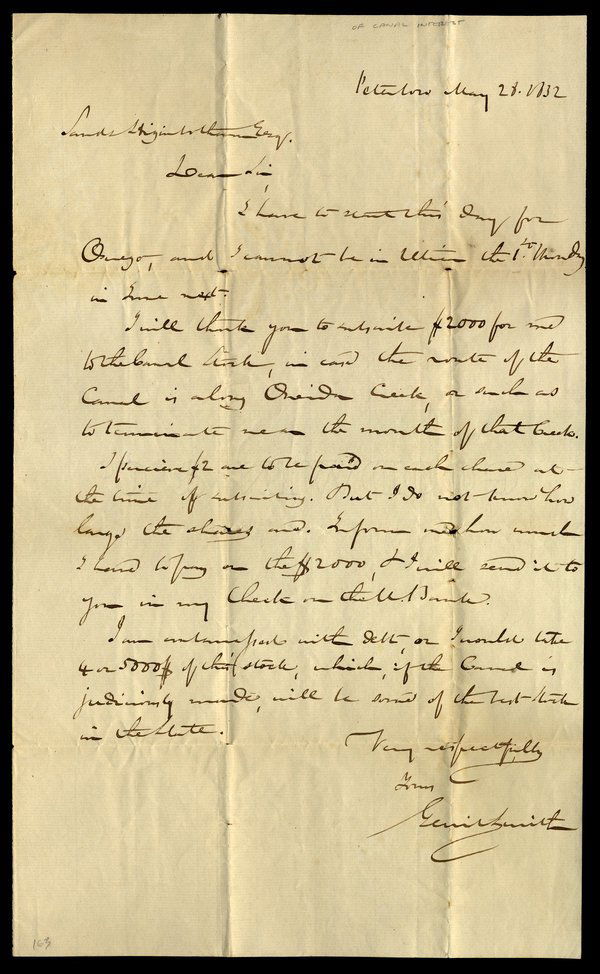 OF CANAL INTEREST
Peterboro May 28. 1832
Sands Higinbotham Esq.
Dear Sir,
I have to start this day for
Oswego, and I cannot be in Utica the 1st. Monday
in June next.
I will thank you to subscribe $2000 for me
to the Canal Stock, in case the route of the
Canal is along Oneida Creek, or such as
to terminate near the mouth of that Creek.
I perceive $2 are to be paid on each share at
the time of subscribing. But I do not know how
large the shares are. Inform me how much
I have to pay on the $2000, & I will send it to
you in my Check on the U. Bank.
I am embarrassed with debt, or I would take
4 or 5000$ of this stock, which, if the Canal is
judiciously made, will be some of the best stock
in the State.
Very respectfully
Yours
Gerrit Smith
163